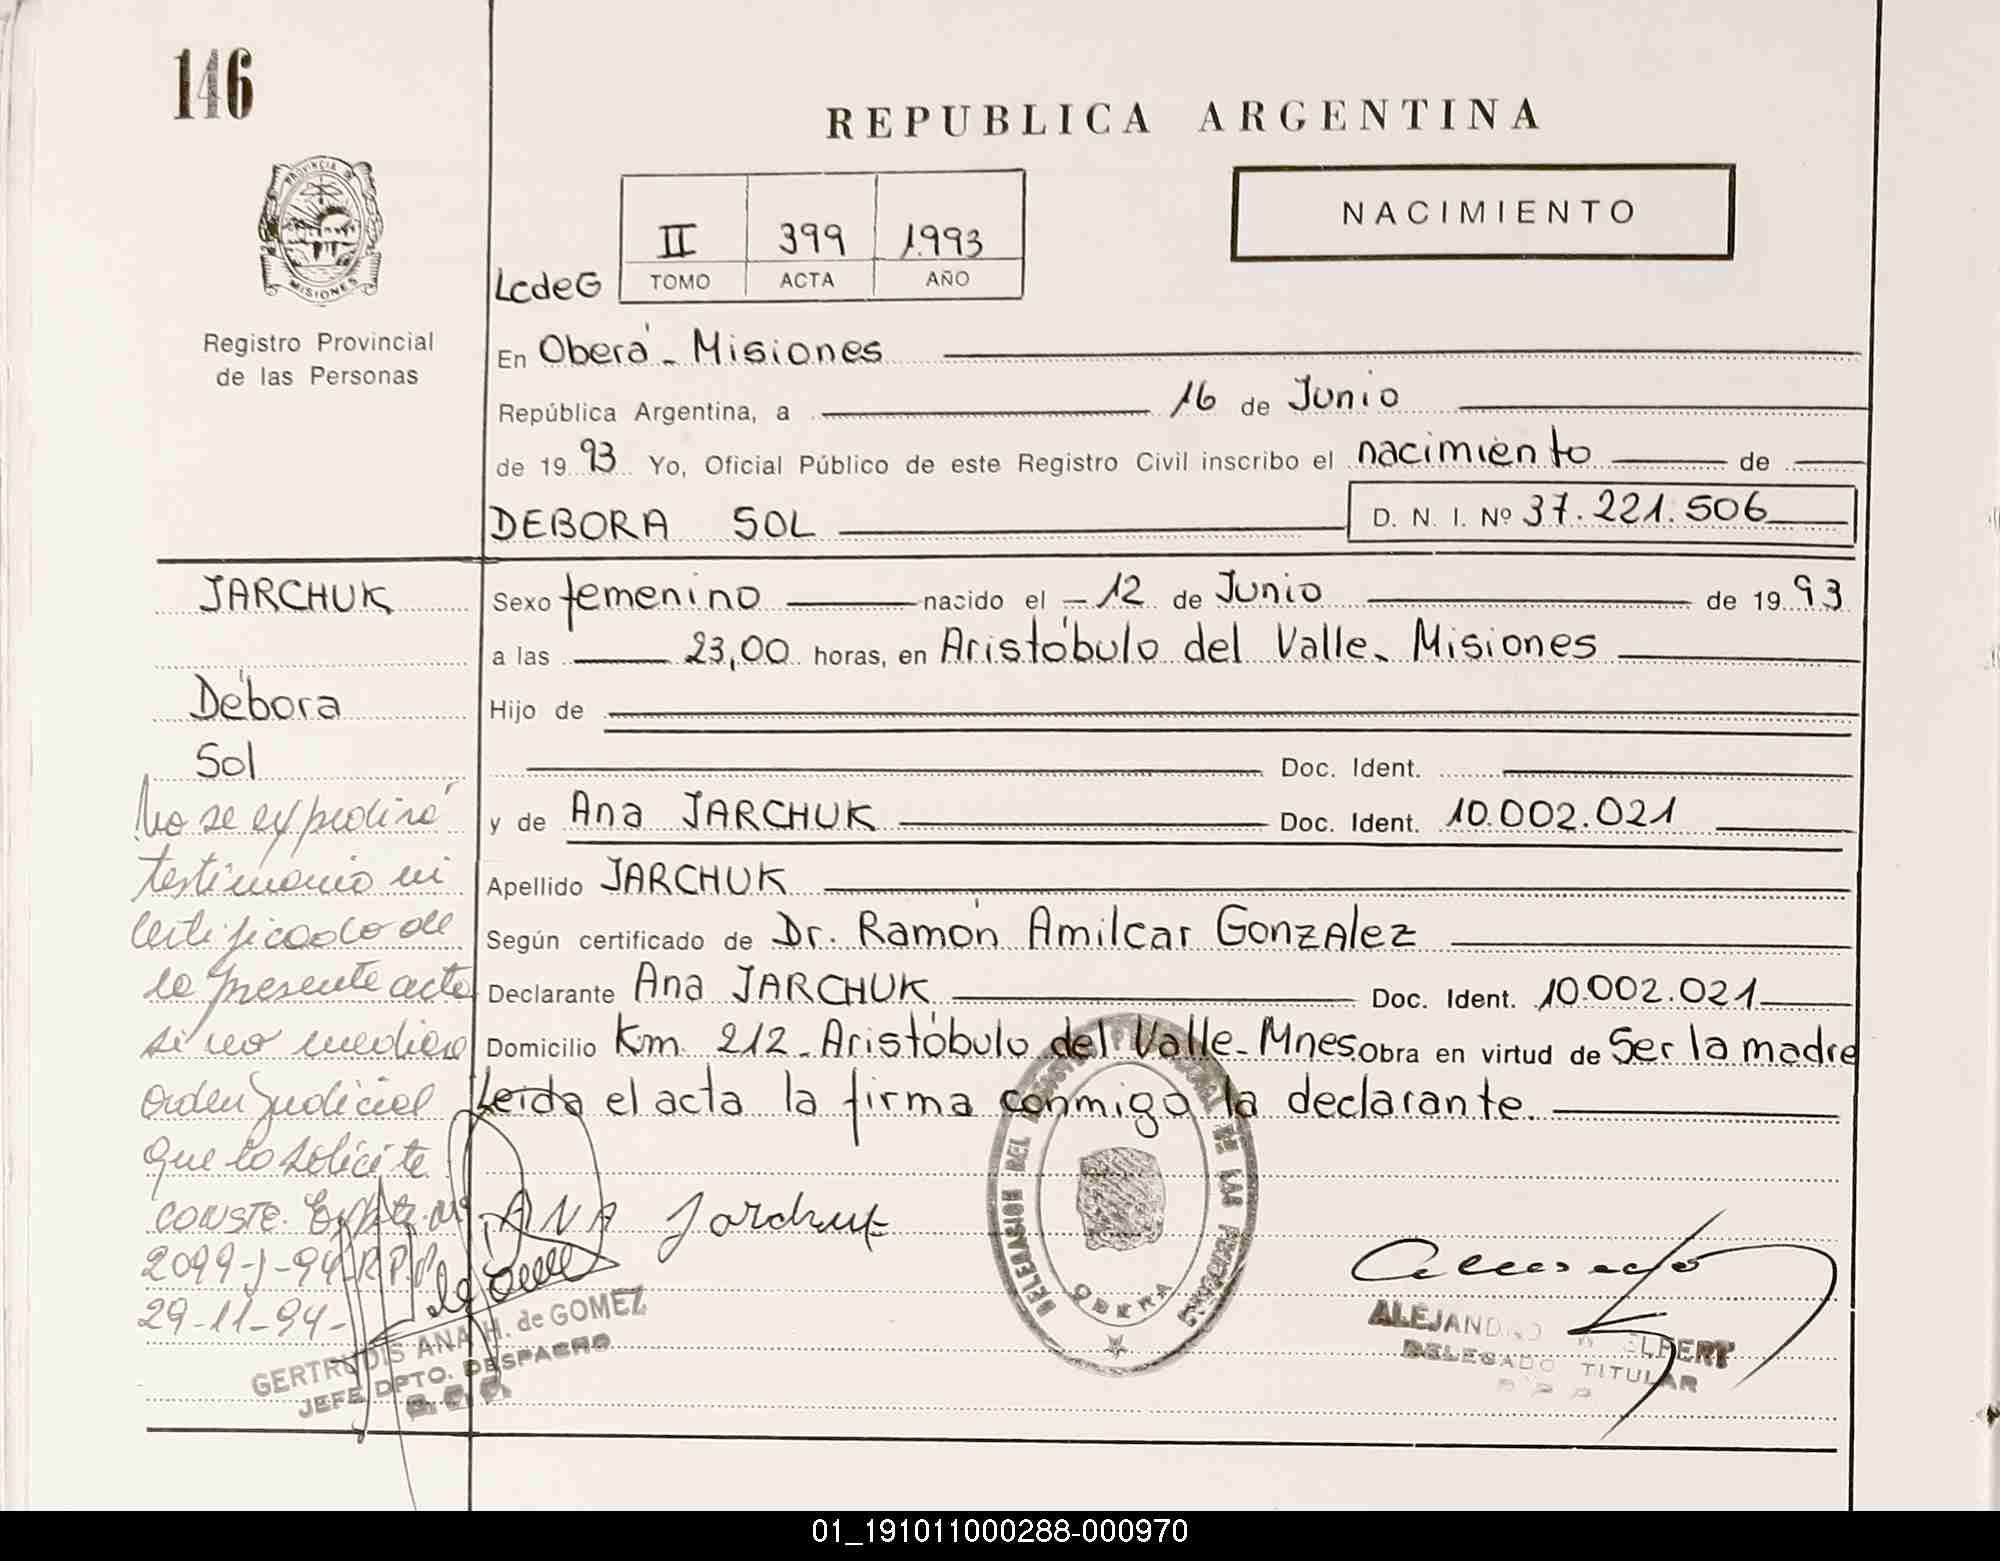 146
REPUBLICA ARGENTINA
PROVINCIA DE
MISIONES
Registro Provincial
de las Personas
NACIMIENTO
II 399 1.993
TOMO ACTA AÑO
LcdeG
En Oberá - Misiones
República Argentina, a 16 de Junio
de 19 93 Yo, Oficial Público de este Registro Civil inscribo el nacimiento de
DEBORA SOL D. N. I. Nº 37.221.506
JARCHUK
Débora
Sol
Sexo femenino nacido el - 12 de Junio de 19 93
a las 23,00 horas, en Aristóbulo del Valle - Misiones
Hijo de
Doc. Ident.
y de Ana JARCHUK Doc. Ident. 10.002.021
Apellido JARCHUK
Según certificado de Dr. Ramón Amilcar GonzAlez
Declarante Ana JARCHUK Doc. Ident. 10.002.021
Domicilio Km. 212 - Aristóbulo del Valle - Mnes. Obra en virtud de Ser la madre
Leída el acta la firma conmigo la declarante.
No se expedirá
testimonio ni
certificado de
la presente acta
si no mediare
orden judicial
que lo solicite
CONSTE. Expte. Nº
2099-J-94-R.P.P.
29-11-94-
ANA Jarchuk
GERTRUDIS ANA H. de GOMEZ
JEFE DPTO. DESPACHO
DELEGACION DEL REGISTRO PROVINCIAL DE LAS PERSONAS
OBERA
DELEGADO TITULAR
01_191011000288-000970